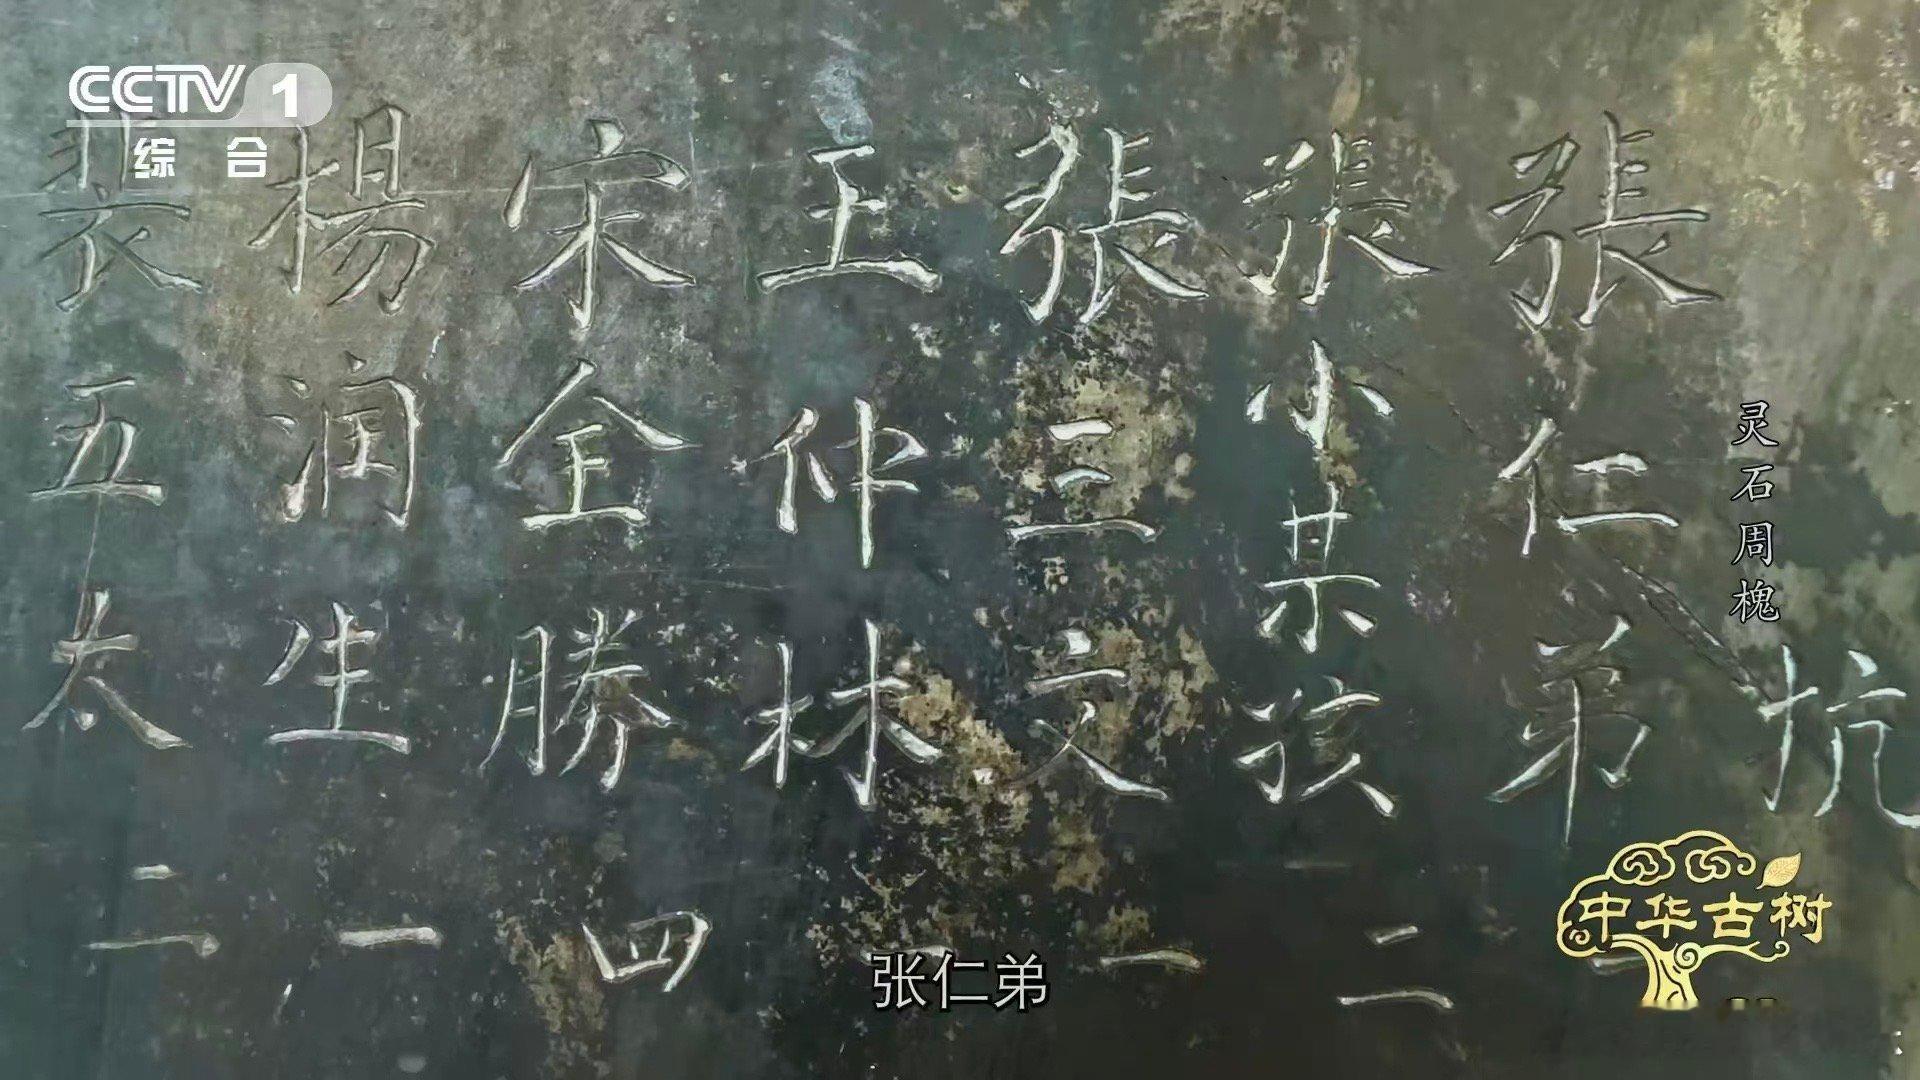 CCTV 1
综合
灵石周槐
抗
張仁弟
張小某孩二
張三文一
王仲林
宋全勝四
楊润生一
裴五太二
中华古树
张仁弟